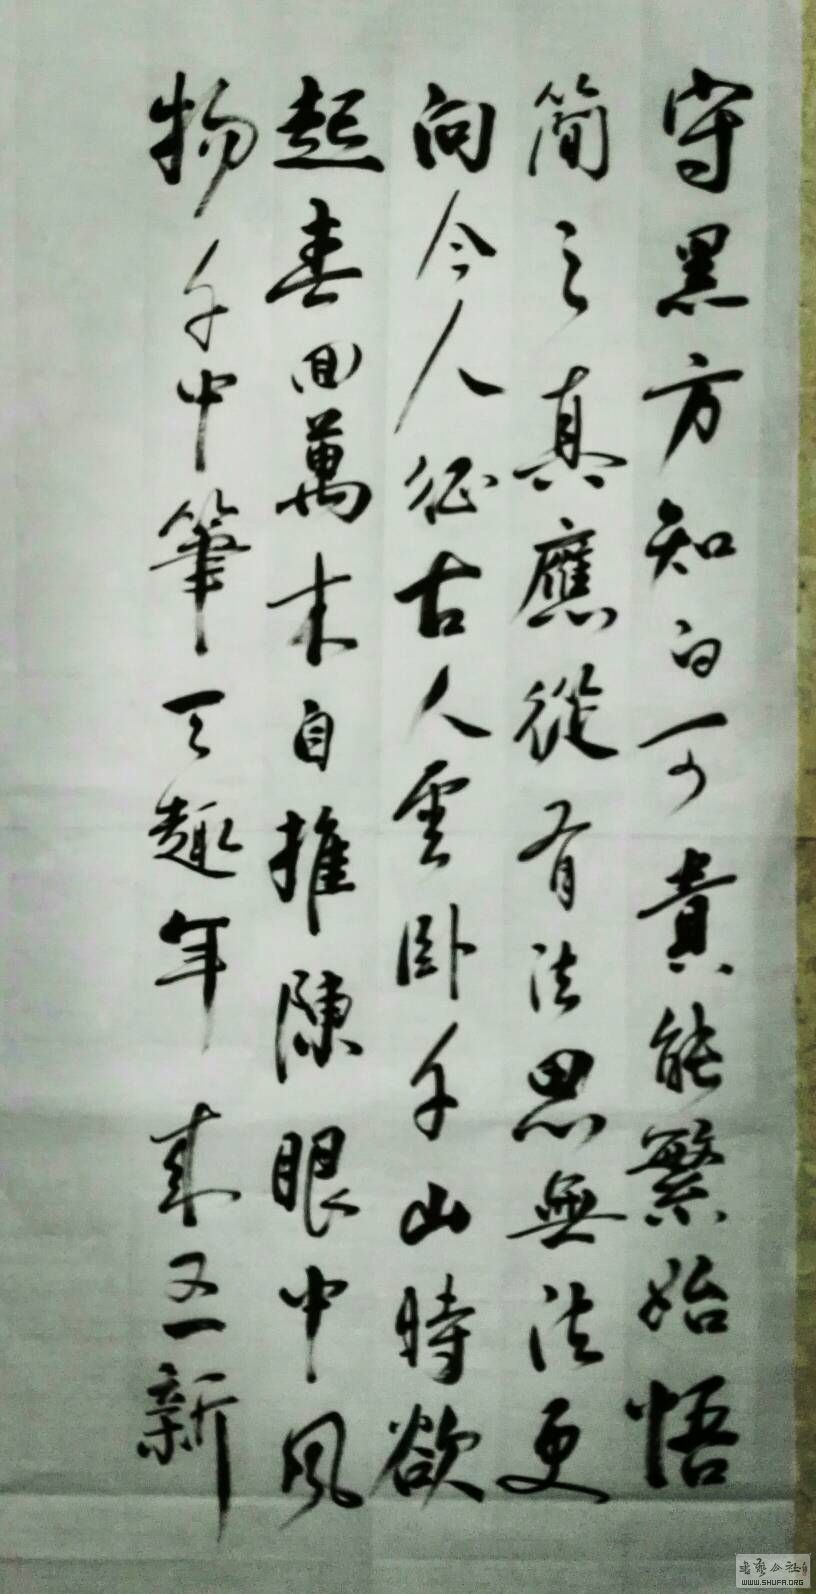 守黑方知白可貴能繁始悟
簡之真應從有法思無法更
向今人征古人雲卧千山時欲
起春回萬木自推陳眼中風
物手中筆天趣年來又一新
書藝公社
WWW.SHUFA.ORG